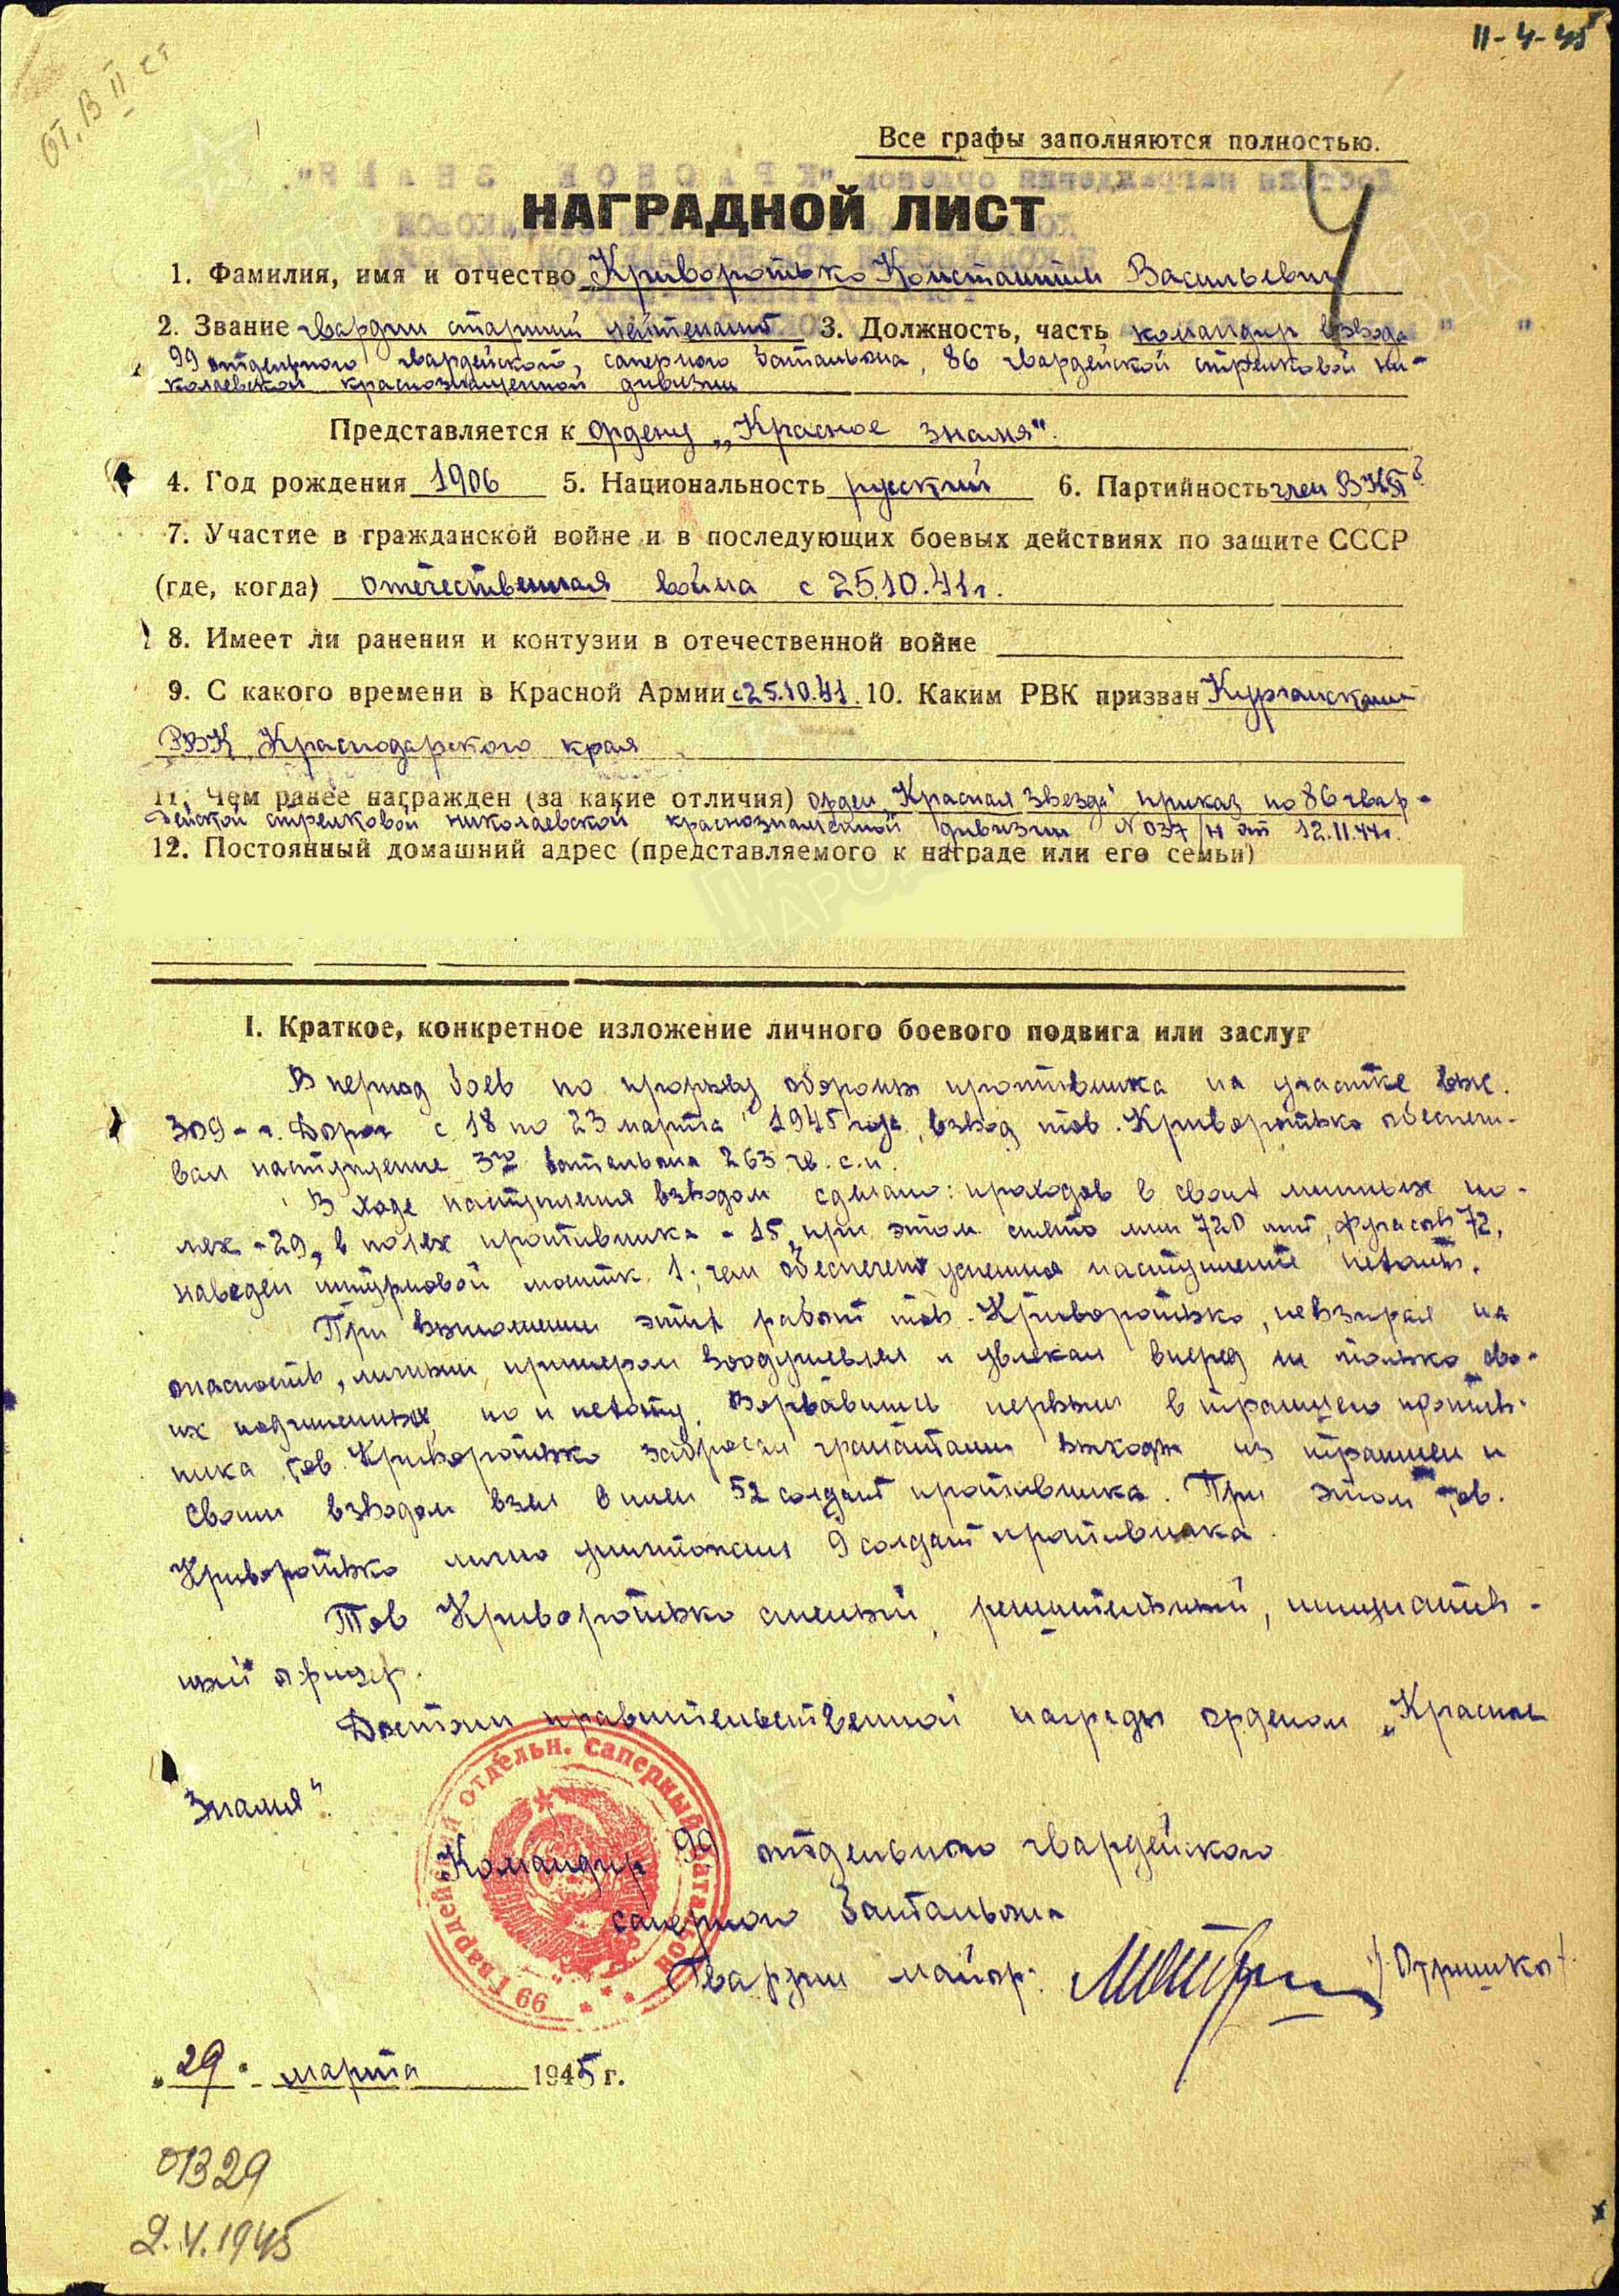 11-4-45
От. В II ст
Все графы заполняются полностью.
НАГРАДНОЙ ЛИСТ
1. Фамилия, имя и отчество Криворотько Константин Васильевич
2. Звание гвардии старший лейтенант 3. Должность, часть командир взвода
99 отдельного гвардейского саперного батальона, 86 гвардейской стрелковой ни-
колаевской краснознаменной дивизии
Представляется к ордену „Красное знамя".
4. Год рождения 1906 5. Национальность русский 6. Партийность член ВКПб
7. Участие в гражданской войне и в последующих боевых действиях по защите СССР
(где, когда) отечественная война с 25.10.41г.
8. Имеет ли ранения и контузии в отечественной войне
9. С какого времени в Красной Армии с 25.10.41. 10. Каким РВК призван Курганским
РВК Краснодарского края
11. Чем ранее награжден (за какие отличия) орден „Красная Звезда" приказ по 86 гвар-
дейской стрелковой николаевской краснознаменной дивизии N 037/н от 12.11.44г.
12. Постоянный домашний адрес (представляемого к награде или его семьи)
I. Краткое, конкретное изложение личного боевого подвига или заслуг
В период боев по прорыву обороны противника на участке выс.
309 - г. Дорог с 18 по 23 марта 1945 года, взвод тов. Криворотько обеспечи-
вал наступление 3го батальона 263 гв. с.п.
В ходе наступления взводом сделано: проходов в своих минных по-
лях - 29, в полях противника - 15, при этом снято мин 720 шт, фугасов 72,
наведен штурмовой мостик 1; чем обеспечено успешное наступление пехоты.
При выполнении этих работ тов. Криворотько, невзирая на
опасность, личным примером воодушевлял и увлекал вперед не только сво-
их подчиненных но и пехоту. Ворвавшись первым в траншею против-
ника тов. Криворотько забросал гранатами выходы из траншеи и
своим взводом взял в плен 52 солдат противника. При этом тов.
Криворотько лично уничтожил 9 солдат противника.
Тов Криворотько смелый, решительный, инициатив-
ный офицер.
Достоин правительственной награды орденом „Красное
Знамя".
Командир 99 отдельного гвардейского
саперного батальона
Гвардии майор: /Отришко/.
99 Гвардейский отдельн. саперный батальон
„29" марта 1945 г.
0329
2.4.1945